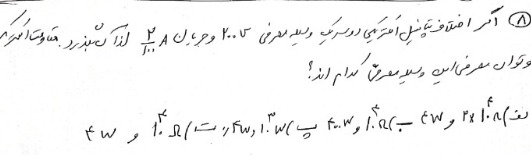 ۸) اگر اختلاف پتانسیل الکتریکی دو سر یک وسیله مصرفی ۲۰۰ v و جریان ۲/۱۰۰ A از آن بگذرد. مقاومت الکتریکی
و توان مصرفی این وسیله مصرفی کدام اند؟
الف) ۲×۱۰^۴ Ω و ۴ w ب) ۱۰^۴ Ω و ۴۰۰ w پ) ۱۰^۳ w و ۴ w ت) ۱۰^۴ Ω و ۴ w